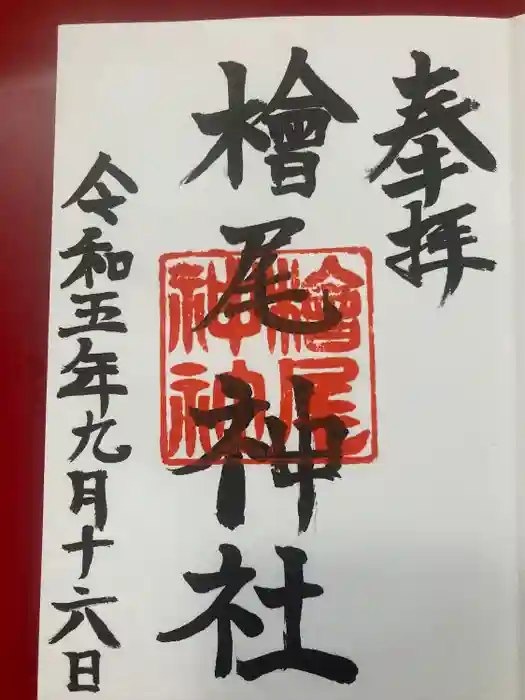 奉拝
檜尾神社
檜尾神社
令和五年九月十六日